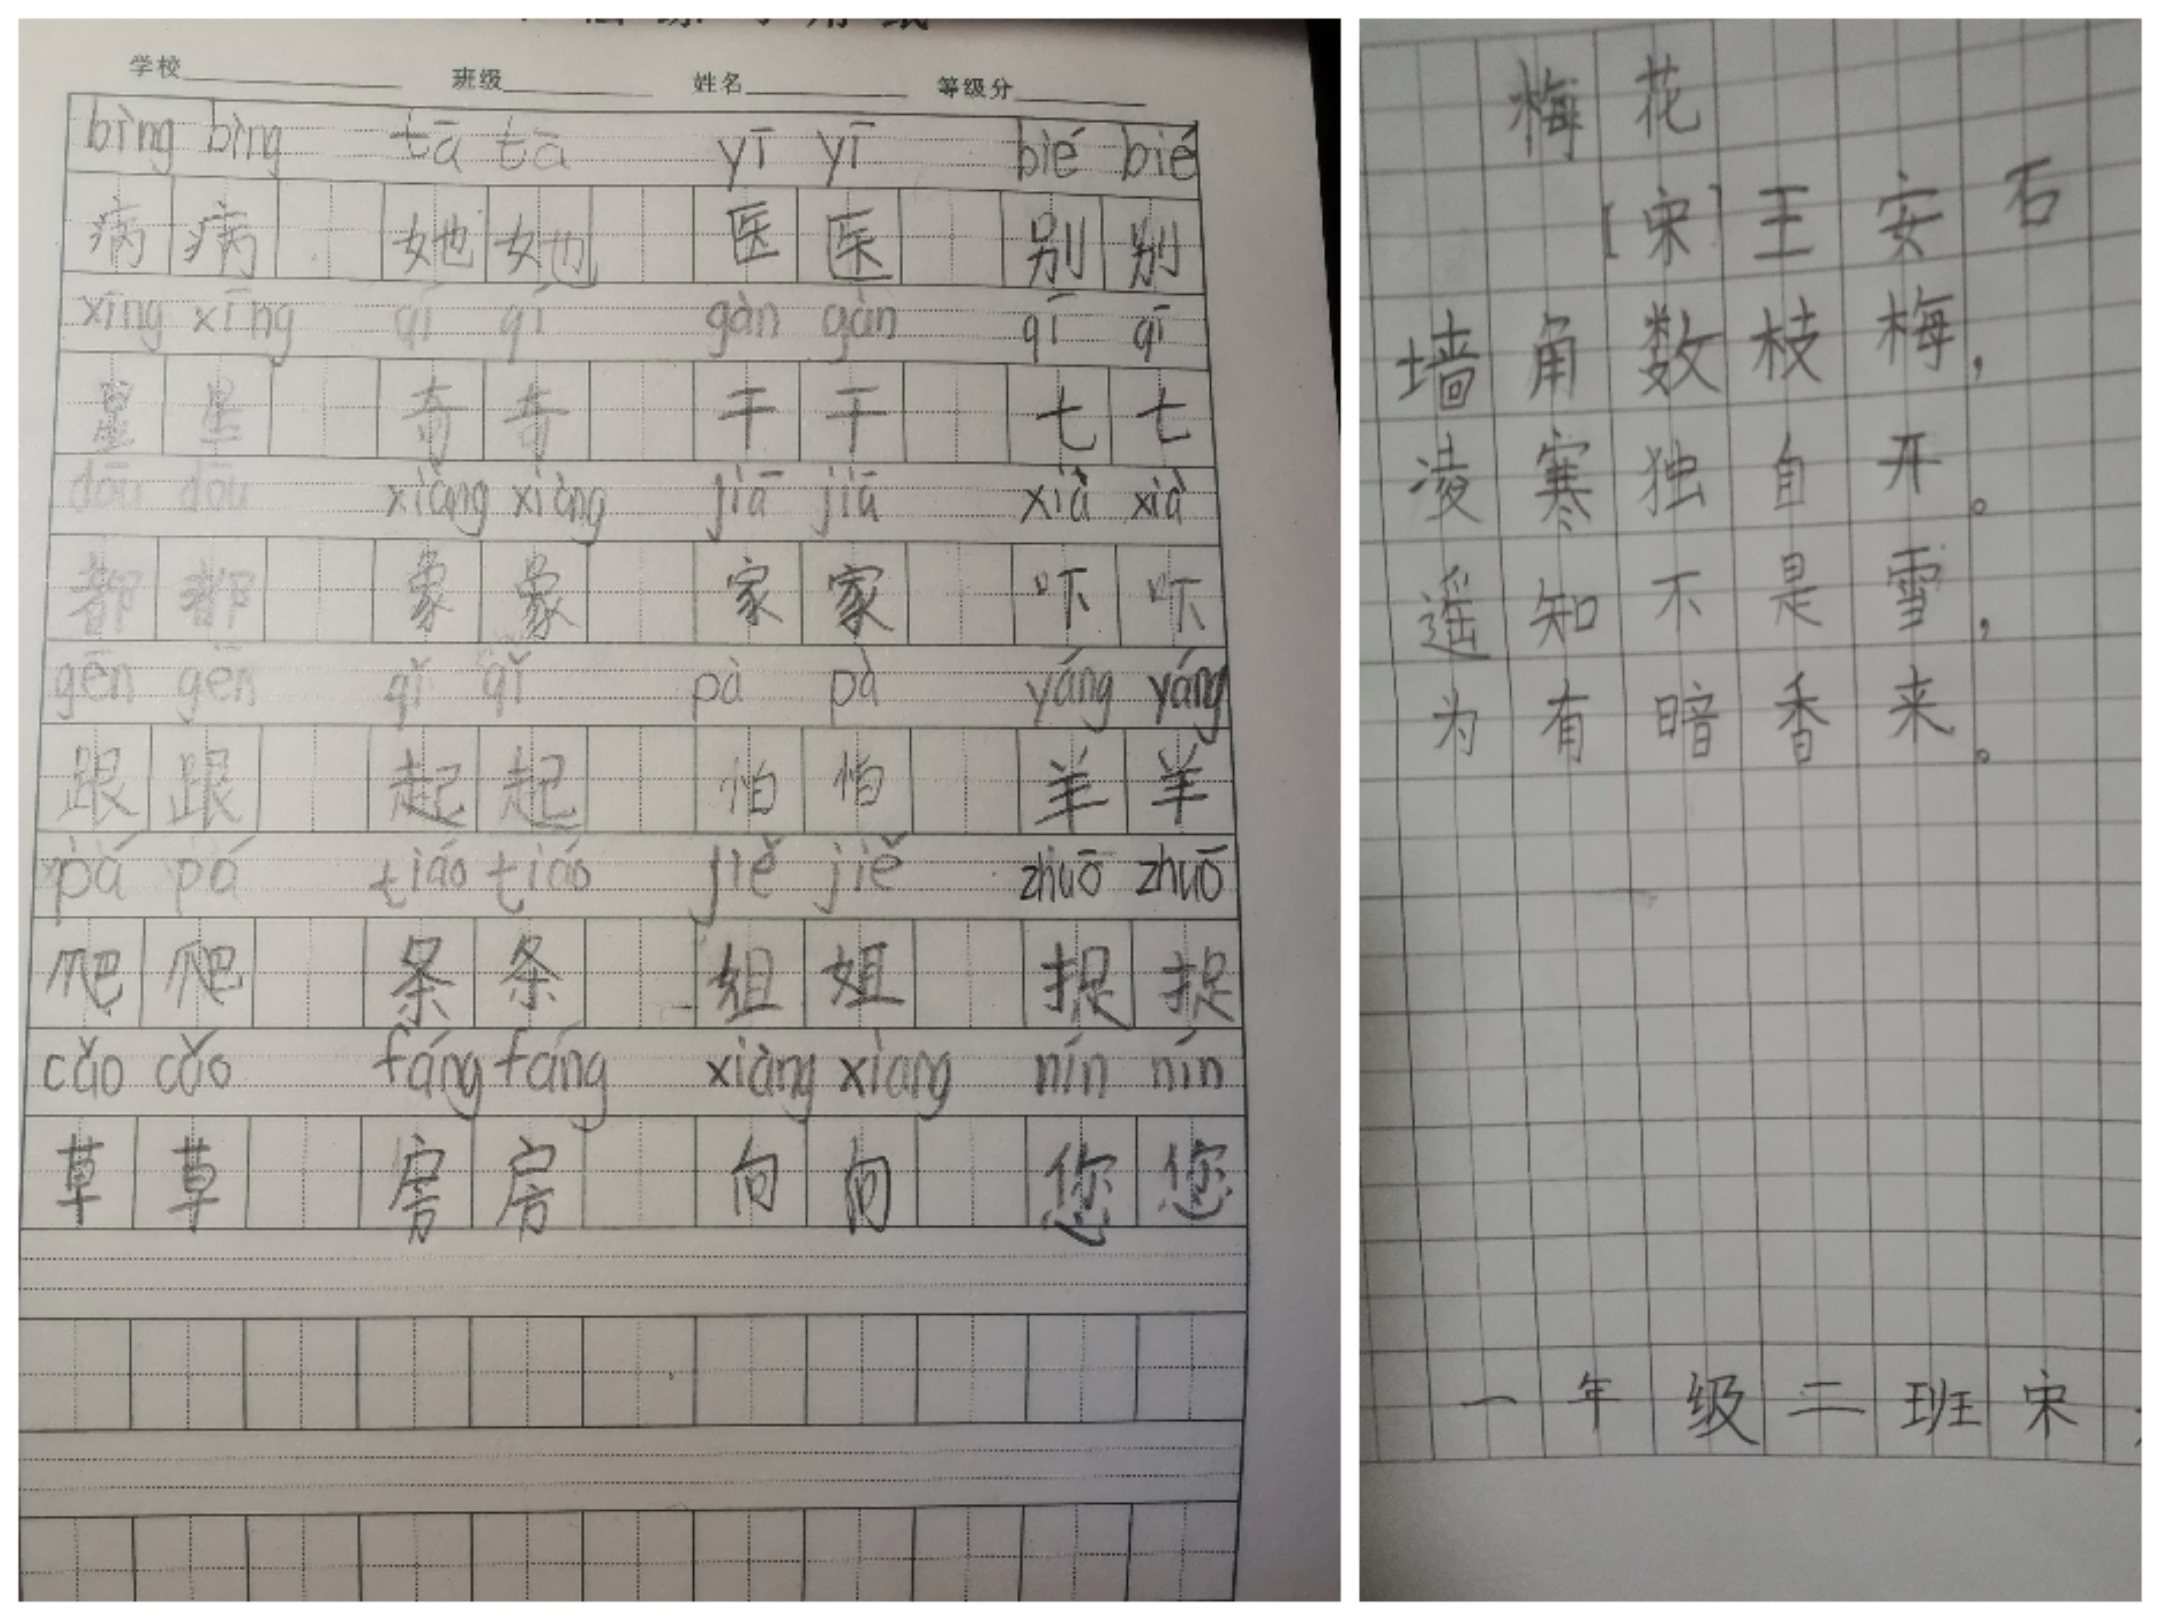 学校 班级 姓名 等级分
bìng bìng tā tā yī yī bié bié
病 病 她 她 医 医 别 别
xīng xīng qí qí gàn gàn qī qī
星 星 奇 奇 干 干 七 七
dōu dōu xiàng xiàng jiā jiā xià xià
都 都 象 象 家 家 吓 吓
gēn gēn qǐ qǐ pà pà yáng yáng
跟 跟 起 起 怕 怕 羊 羊
pá pá tiáo tiáo jiě jiě zhuō zhuō
爬 爬 条 条 姐 姐 捉 捉
cǎo cǎo fáng fáng xiàng xiang nín nín
草 草 房 房 向 向 您 您
梅花
[宋]王安石
墙角数枝梅，
凌寒独自开。
遥知不是雪，
为有暗香来。
一年级二班宋